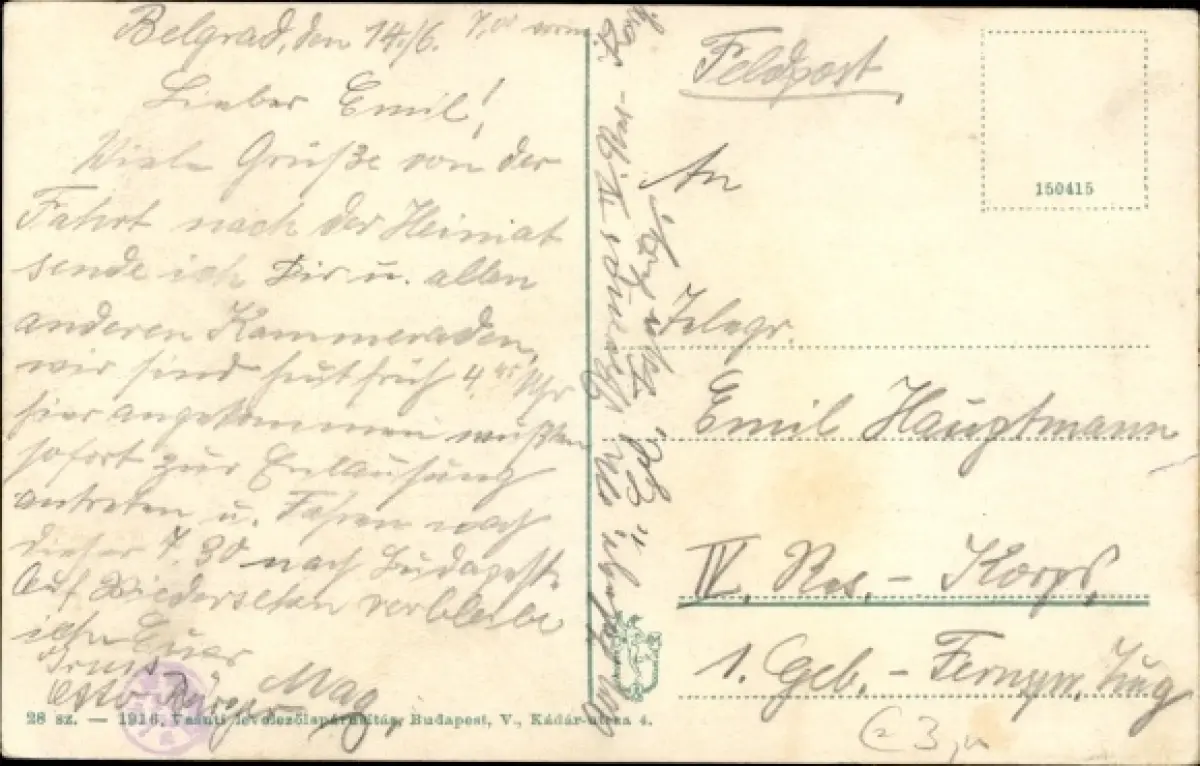 Belgrad, den 14./6. 7,00 vorm.
Lieber Emil!
Viele Grüße von der
Fahrt nach der Heimat
sende ich Dir u. allen
anderen Kammeraden,
wir sind heut früh 4 Uhr
hier angekommen mußten
sofort zur Entlausung
antreten u. Fahren nach
dieser 7.30 nach Budapest.
Auf Wiedersehen verbleibe
ich Euer
Otto Max
28 sz. — 1916, Vasuti levelezőlapárusítás, Budapest, V., Kádár-utca 4.
IV. Res.- Korps
1. Geb.
Feldpost
150415
An
Telegr.
Emil Hauptmann
IV. Res.- Korps,
1. Geb.- Fernspr. Zug